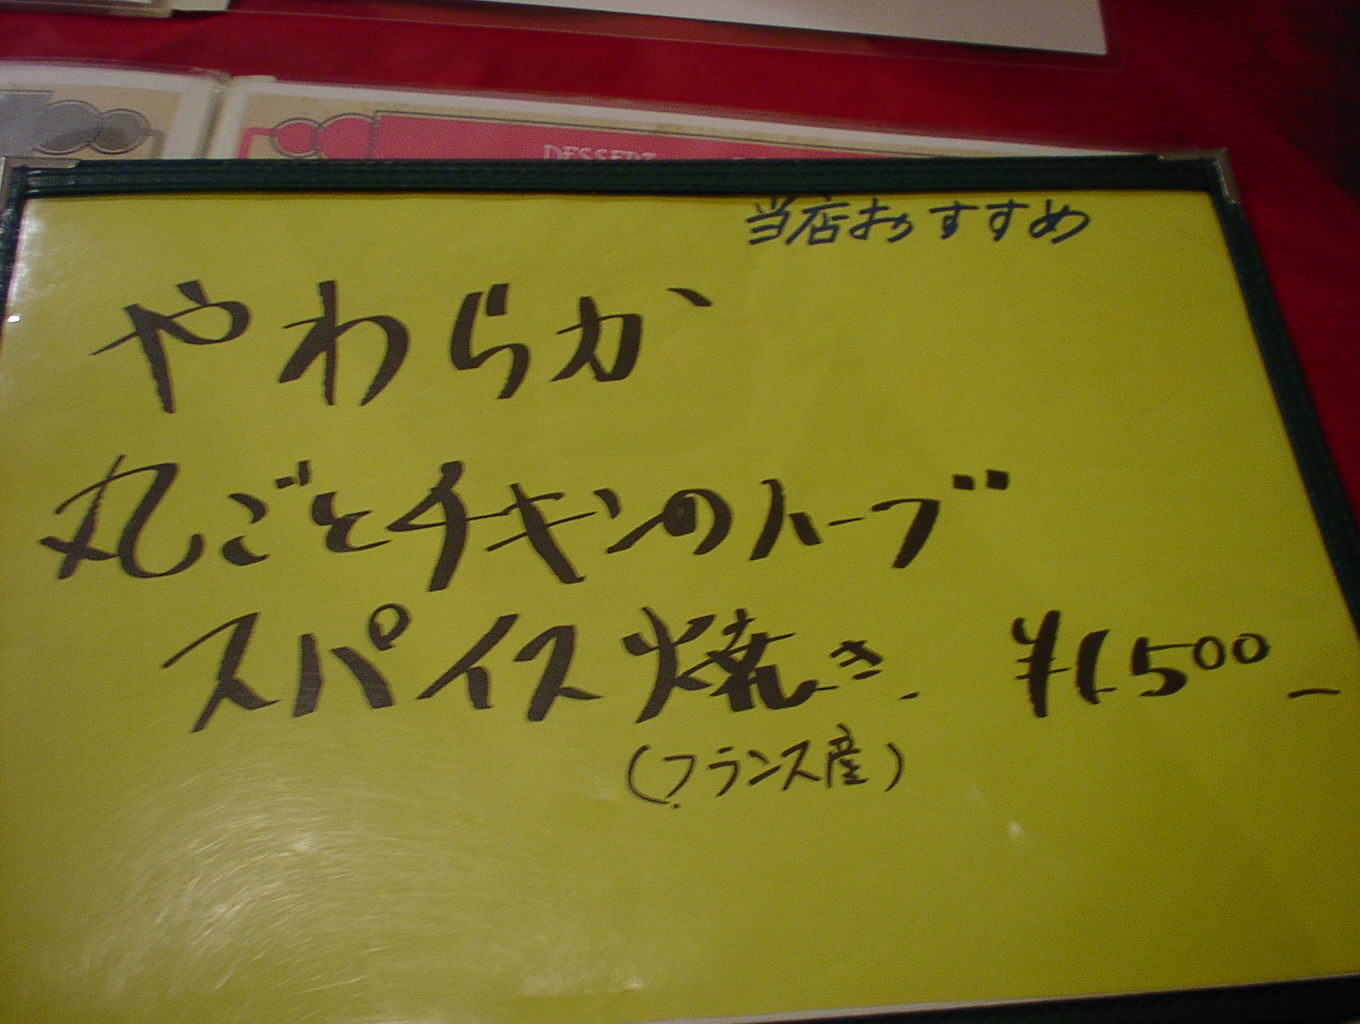 DESSERT
当店おすすめ
やわらか
丸ごとチキンのハーブ
スパイス焼き ¥1500_
(フランス産)